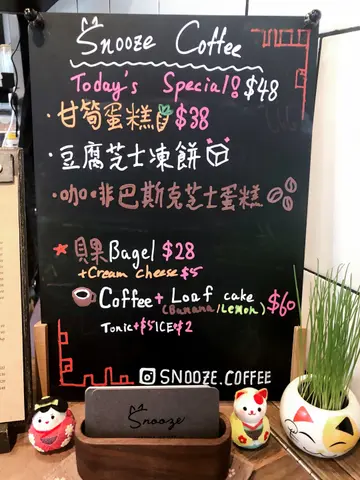 Snooze Coffee
Today's Special! $48
· 甘筍蛋糕 $38
· 豆腐芝士凍餅
· 咖啡巴斯克芝士蛋糕
* 貝果Bagel $28
+Cream cheese $5
Coffee + Loaf cake $60
(Banana/Lemon)
Tonic+$5 ICE+$2
SNOOZE.COFFEE
Snooze